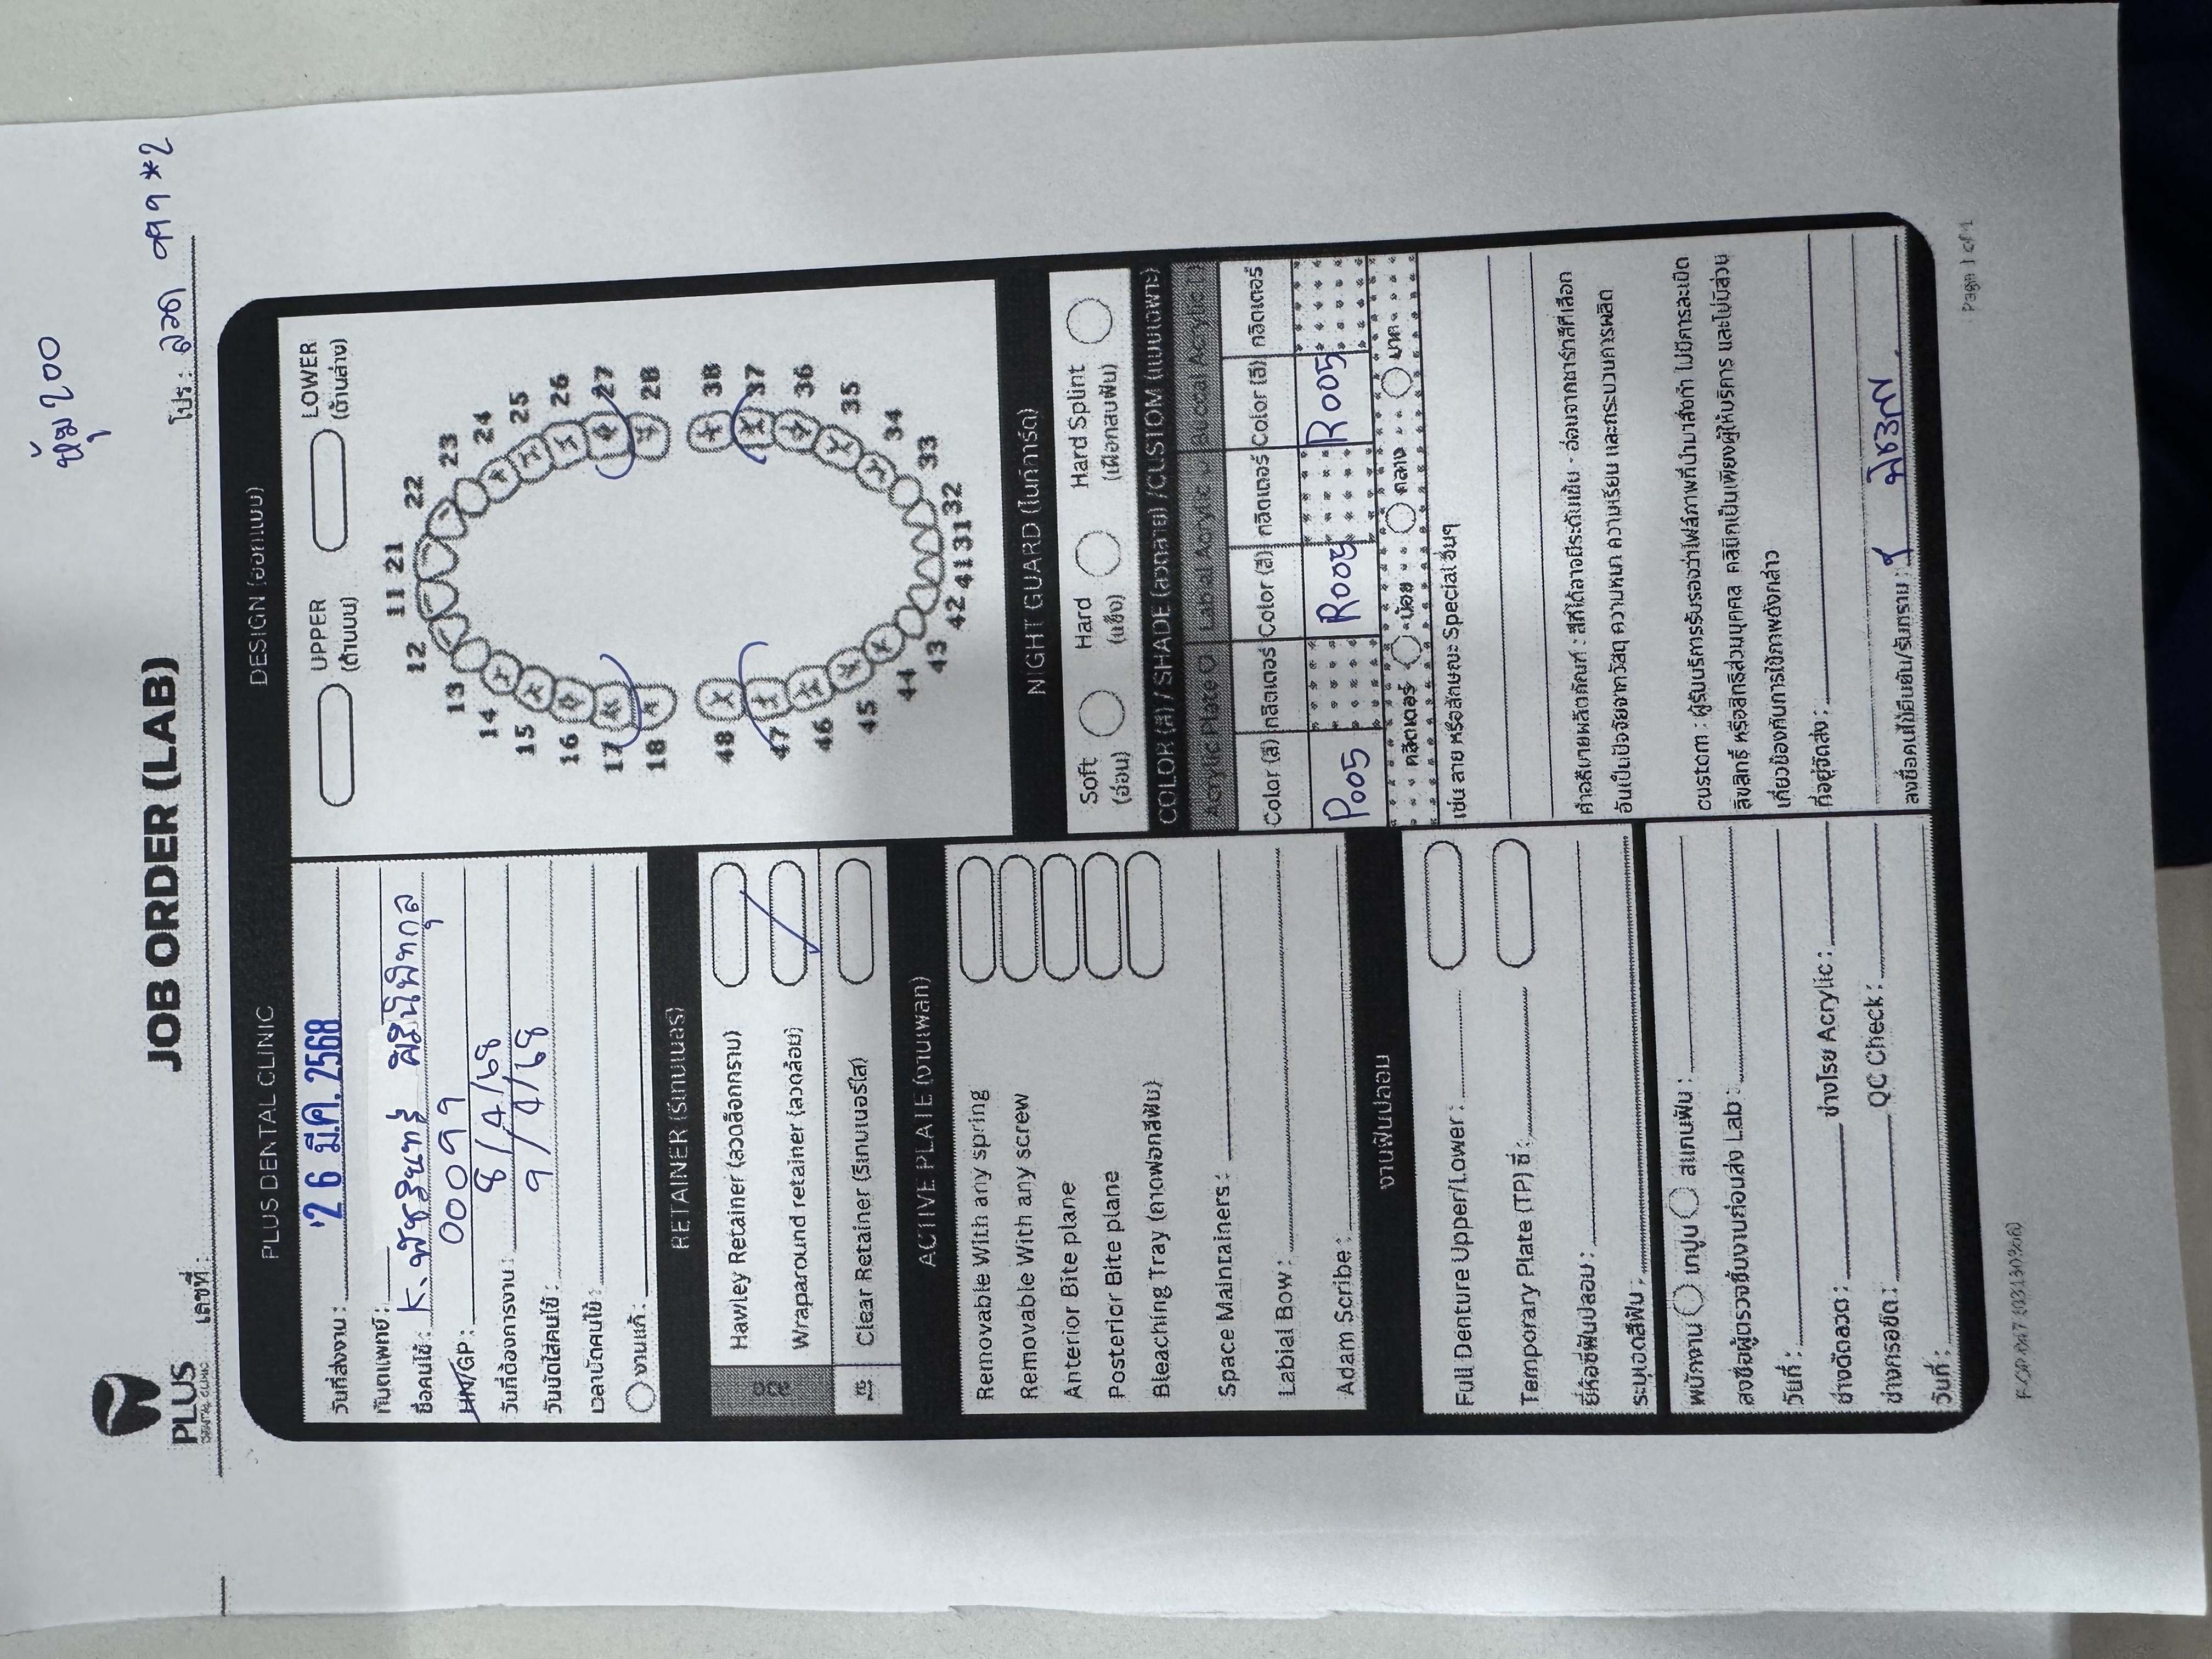 หุ้ม 200
PLUS
DENTAL CLINIC
JOB ORDER (LAB)
เลขที่ :
โปร : ลวด 999*2
PLUS DENTAL CLINIC
วันที่ส่งงาน : 26 มี.ค. 2568
ทันตแพทย์ :
ชื่อคนไข้ : K. พัชรินทร์ ศิรินิพิทกุล
HN/GP : 00099
วันที่ต้องการงาน : 8/4/68
วันนัดใส่คนไข้ : 9/4/68
เวลานัดคนไข้ :
งานแก้ :
RETAINER (รีเทนเนอร์)
ลวด
Hawley Retainer (ลวดล็อกกราม)
Wraparound retainer (ลวดล้อม)
ใส
Clear Retainer (รีเทนเนอร์ใส)
ACTIVE PLATE (งานเพลท)
Removable With any spring
Removable With any screw
Anterior Bite plane
Posterior Bite plane
Bleaching Tray (ถาดฟอกสีฟัน)
Space Maintainers :
Labial Bow :
Adam Scribe :
งานฟันปลอม
Full Denture Upper/Lower :
Temporary Plate (TP) ซี่ :
ยี่ห้อซี่ฟันปลอม :
ระบุเฉดสีฟัน :
พนักงาน เทปูน สแกนฟัน :
ลงชื่อผู้ตรวจชิ้นงานก่อนส่ง Lab :
วันที่ :
ช่างดัดลวด : ช่างโรย Acrylic :
ช่างกรอขัด : QC Check :
วันที่ :
DESIGN (ออกแบบ)
UPPER (ด้านบน)
LOWER (ด้านล่าง)
11 21
12 22
13 23
14 24
15 25
16 26
17 27
18 28
48 38
47 37
46 36
45 35
44 34
43 33
42 41 31 32
NIGHT GUARD (ไนท์การ์ด)
Soft (อ่อน)
Hard (แข็ง)
Hard Splint (เฝือกสบฟัน)
COLOR (สี) / SHADE (ลวดลาย) /CUSTOM (แบบเฉพาะ)
Acrylic Plate Labial Acrylic Buccal Acrylic
Color (สี) กลิตเตอร์ Color (สี) กลิตเตอร์ Color (สี) กลิตเตอร์
P005 R005 R005
กลิตเตอร์ น้อย กลาง มาก
เช่น ลาย หรือลักษณะ Special อื่นๆ
คำอธิบายผลิตภัณฑ์ : สีที่ได้อาจมีระดับเข้ม - อ่อนจากชาร์ทสีที่เลือก
อันเป็นปัจจัยจากวัสดุ ความหนา ความเรียบ และกระบวนการผลิต
custom : ผู้รับบริการรับรองว่าไฟล์ภาพที่นำมาสั่งทำ ไม่มีการละเมิด
ลิขสิทธิ์ หรือสิทธิส่วนบุคคล คลินิกเป็นเพียงผู้ให้บริการ และไม่มีส่วน
เกี่ยวข้องกับการใช้ภาพดังกล่าว
ที่อยู่จัดส่ง :
ลงชื่อคนไข้ยืนยัน/รับทราบ :
Page 1 of 1